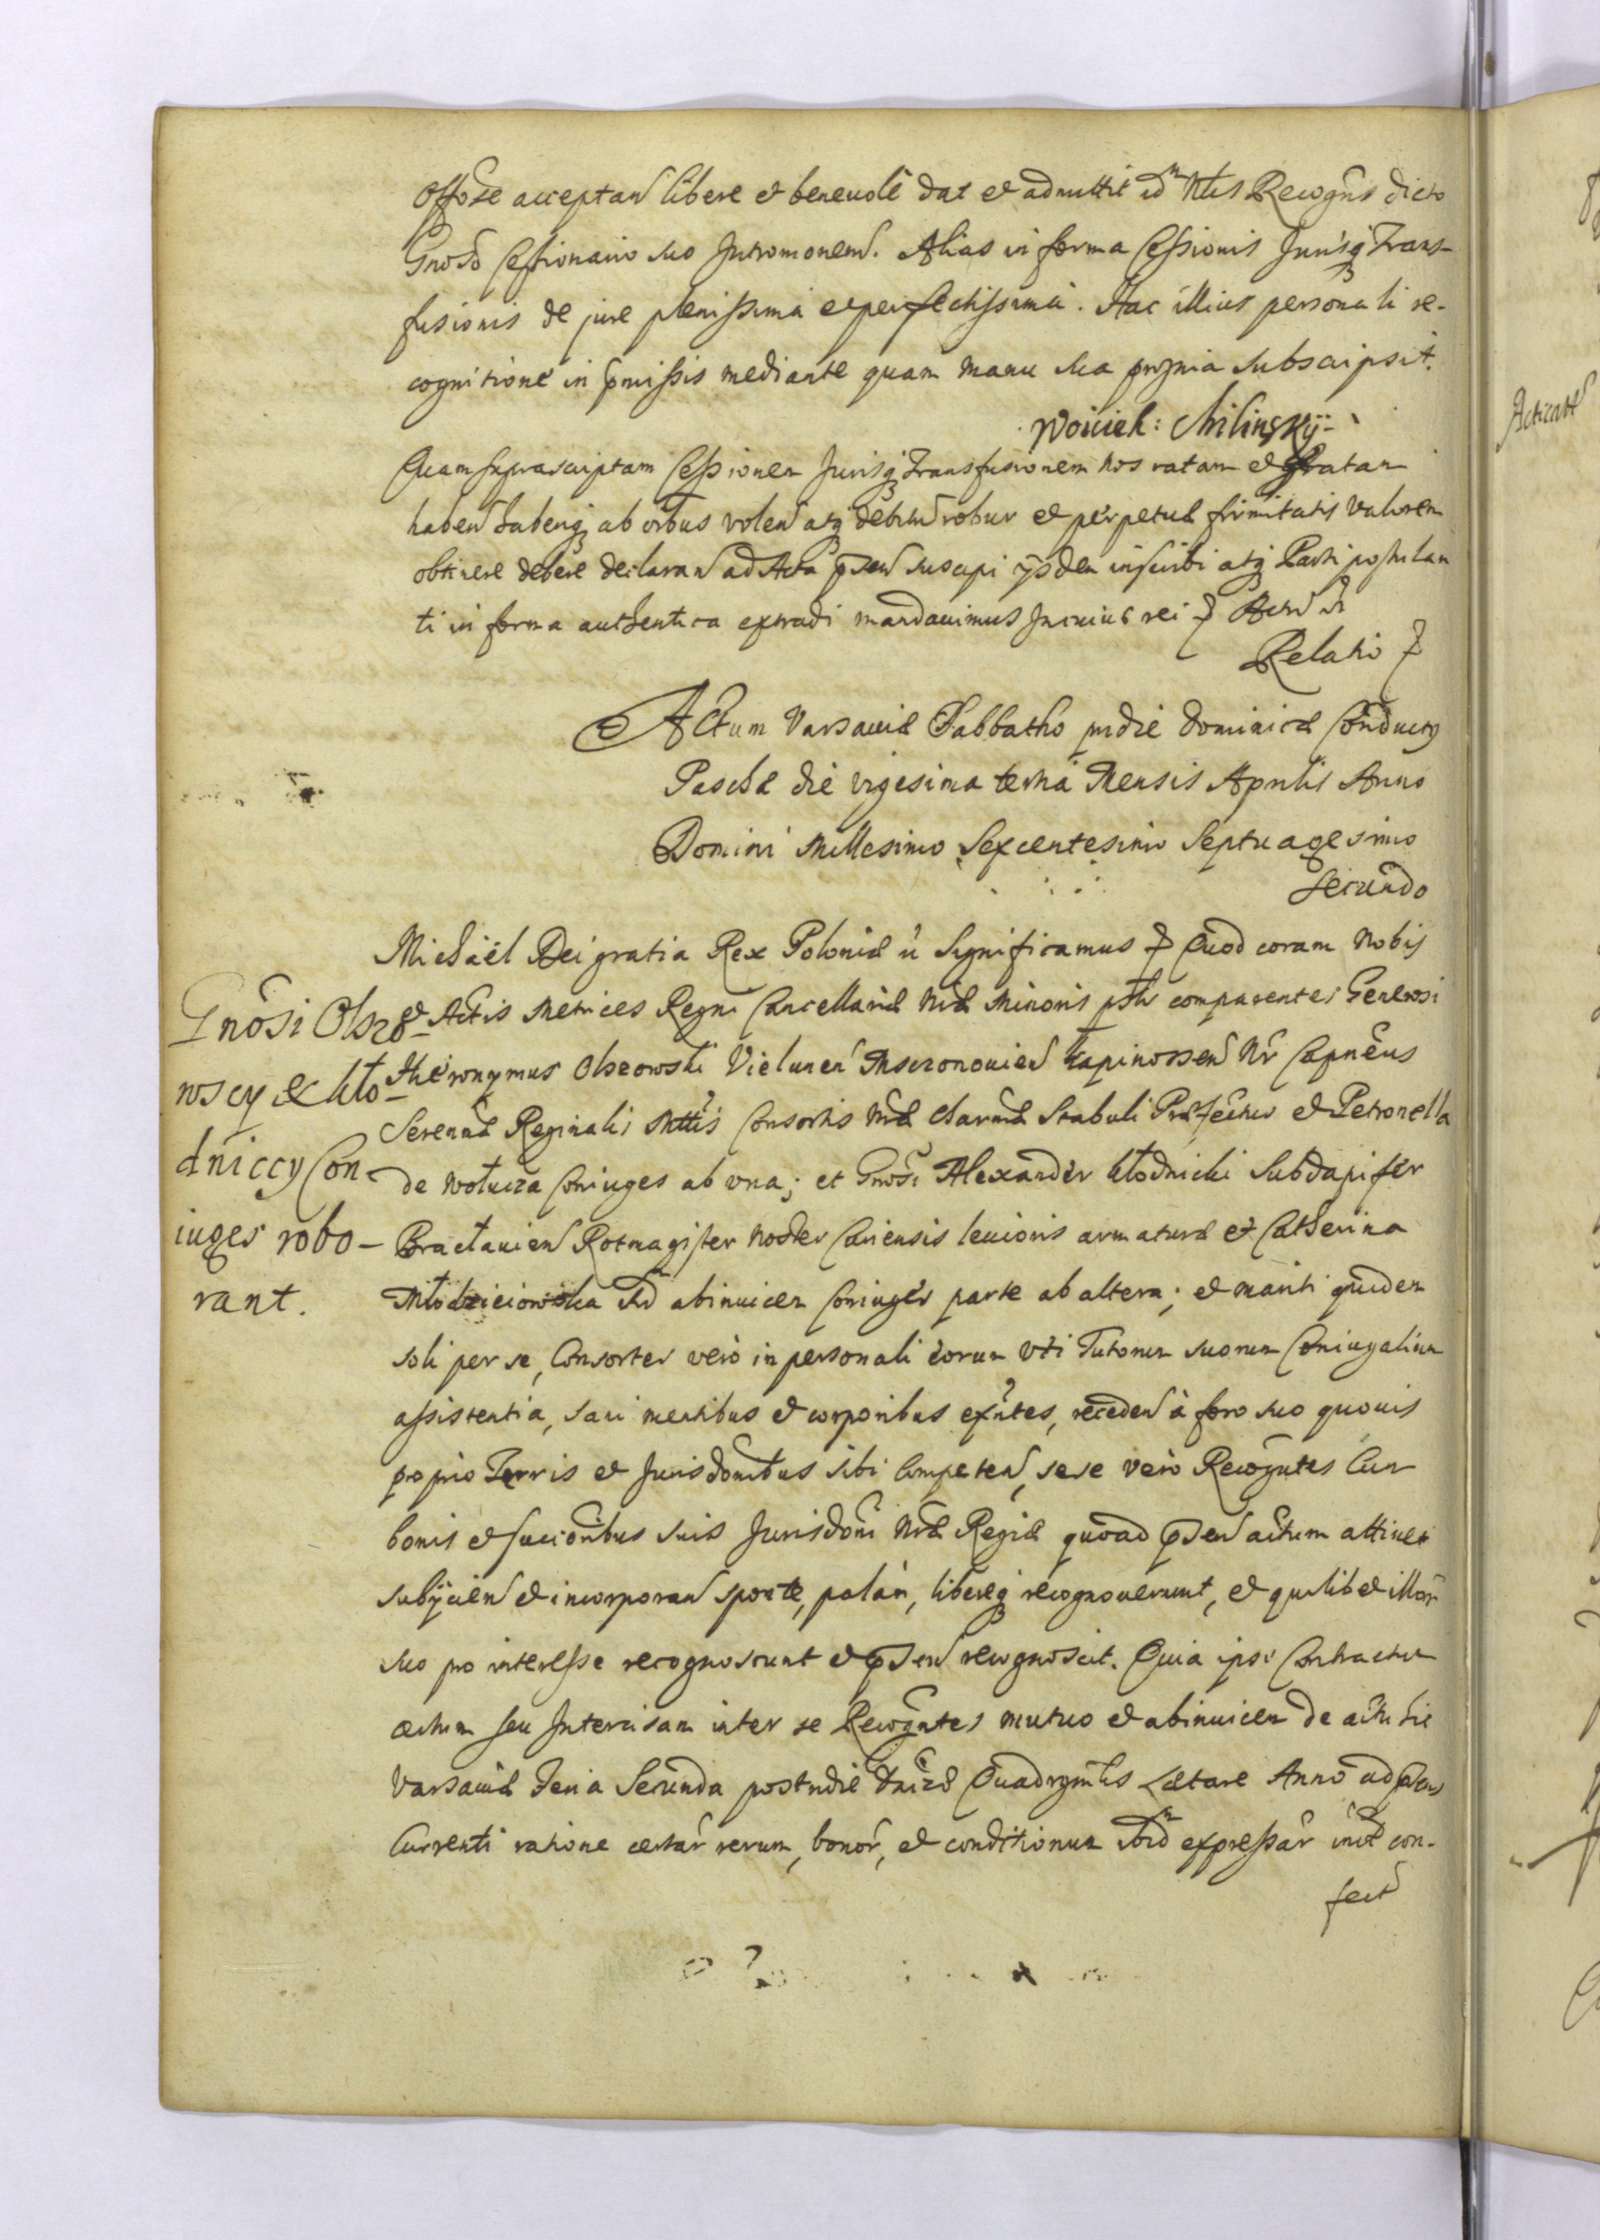 Offose acceptan libere et benevole dat et admittit idm Nlis Recogns dicto
Gnoso Cessionario suo Intromonem. Alias in forma Cessionis Jurisq Trans-
fusionis de jure plenissima et perfectissima. Hac illius personali re-
cognitione in pmissis mediante quam manu sua ppria subscripsit.
Woiciech: Milinskÿ
Quam suprascriptam Cessionem Jurisq Transfusionem nos ratam et gratam
haben haberiq ab oibus volen atq debitu robur et perpetuæ firmitatis valorem
obtinere debere declaran ad Acta psen suscipi ijsdem inscribi atq Parti postulan
ti in forma authentica extradi mandavimus In cuius rei Actu ut
Relatio
Actum Varsaviæ Sabbatho pridie Dominicæ Conductus
Paschæ die vigesima tertia Mensis Aprilis Anno
Domini Millesimo Sexcentesimo Septuagesimo
Secundo
Michaël Dei gratia Rex Poloniæ Significamus Quod coram Nobis
Gnosi Olszo-
wscy et Kło-
dniccy Con-
iuges robo-
rant.
et Actis Metrices Regni Cancellariæ Nræ Minoris psltr comparentes Generosi
Hieronymus Olszowski Vielunen Mszczonovien Capinossen Nr Capneus
Serenmæ Reginalis Mttis Consortis Nræ Charmæ Stabuli Præfectus et Petronella
de Wolucza Coniuges ab una; et Gnosi Alexander Kłodnicki Subdapifer
Bractavien Rotmagister Noster Cariensis levioris armaturæ et Catherina
Młodzieiowska abinvicem Coniuges parte ab altera; et mariti quidem
soli per se, Consortes verò in personali eorum uti Tutorum suorum Coniugalium
assistentia, sani mentibus et corporibus exntes, receden à foro suo quovis
proprio Terris et Jurisdonibus sibi competen, sese verò Recogntes Cum
bonis et succoribus suis Jurisdoni Nræ Regiæ quoad psen actum attinet
subijcien et incorporan sponte, palàm, libereq recognoverunt, et quilibet illor
suo pro interesse recognoscunt et psen recognoscit. Quia ipsi Contractum
certum seu Intercisam inter se Recogntes mutuo et abinvicem de actu hic
Varsaviæ Feria Secunda postridie Dnicæ Quadragmlis Lætare Anno ad psens
Currenti ratione certar rerum, bonor, et conditionum ibid expressar con-
fect